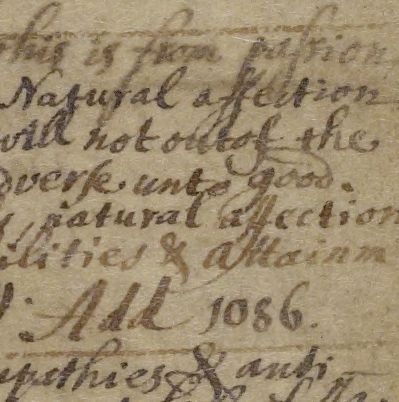 this is from passion
Natural affection
will not out of the
adverse unto good.
natural affection
ilities & attainm
Add 1086.
pathies & anti